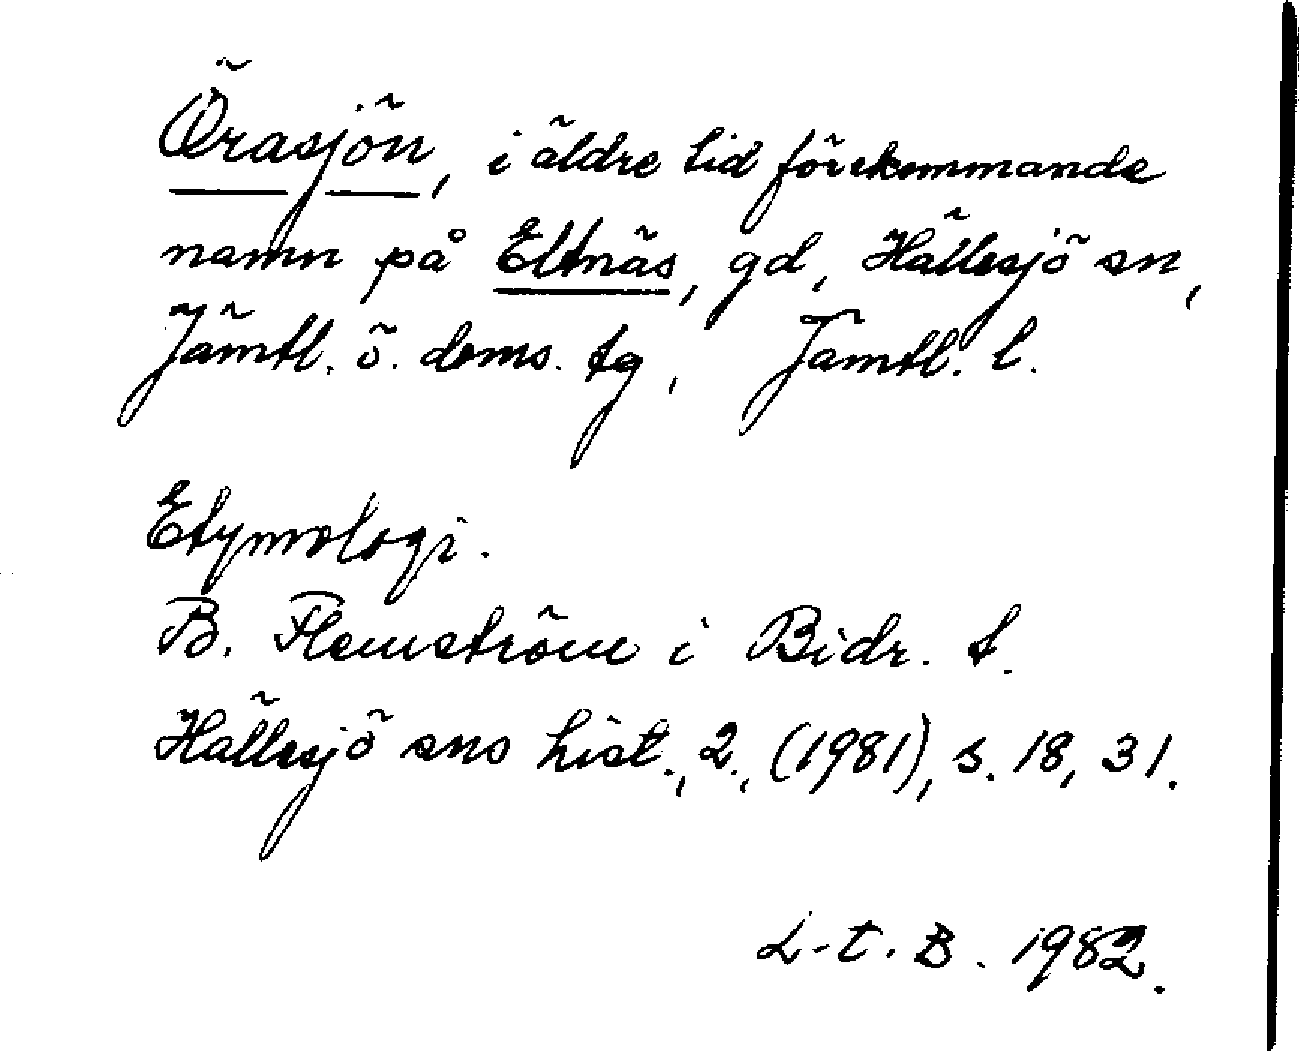 Örasjön, i äldre tid förekommande
namn på Eltnäs, gd, Hällesjö sn,
Jämtl. ö. doms. tg, Jämtl. l.
Etymologi.
B. Flemström i Bidr. t.
Hällesjö sns hist., 2., (1981), s. 18, 31.
L-t. B. 1982.